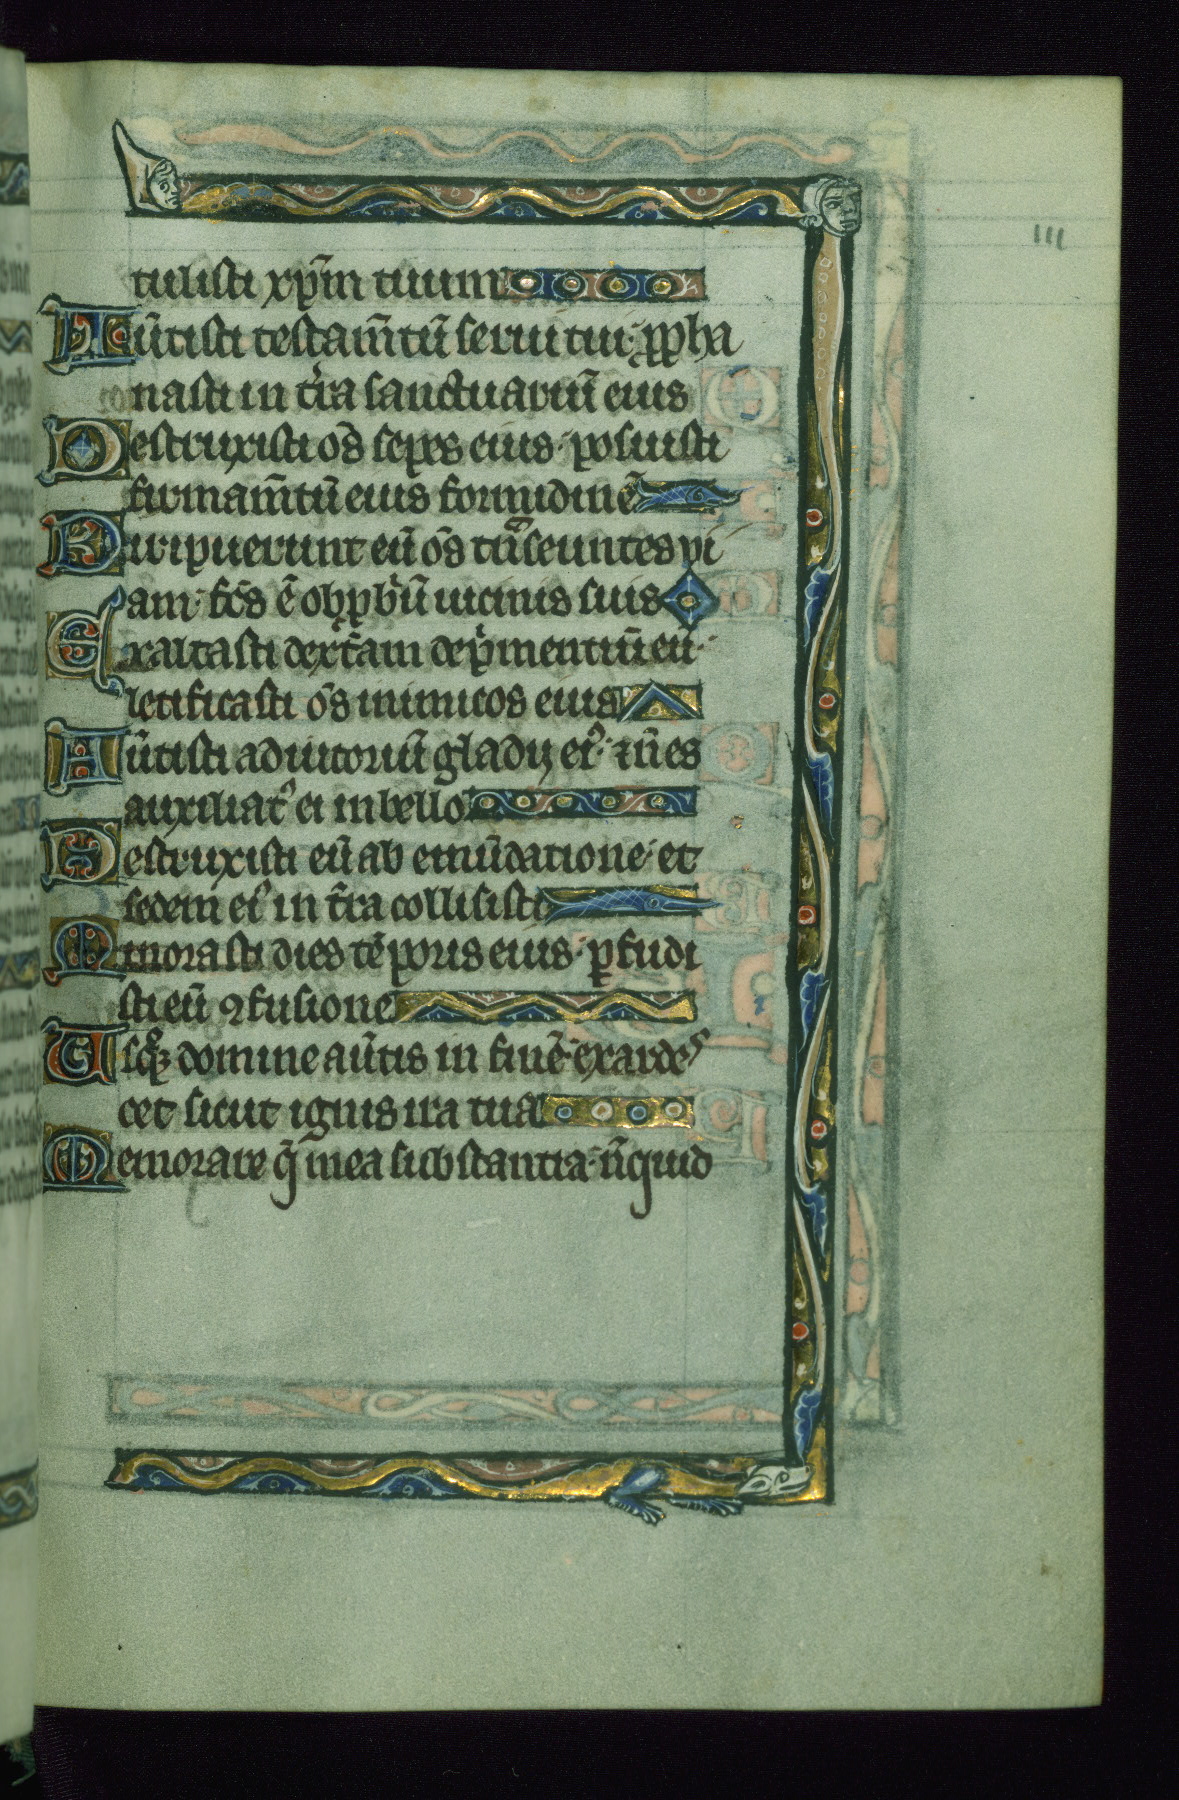 tulisti xp̄m tuum
Aūtisti testam̄tū serui tui· ꝓpha
nasti in t̄ra sanctuariū eius
Destruxisti om̄s sepes eius· posuisti
firmam̄tū eius formidinē
Diripuerunt eū om̄s tͣnseuntes vi
am· fc̄s ē obꝓbͥū uicinis suis
Exaltasti dext̄am depͥmentiū eū·
letificasti om̄s inimicos eius
Aūtisti adiutoriū gladij eiꝰ· ⁊ n̄ es
auxiliatꝰ ei in bello
Destruxisti eū ab emūdatione· et
sedem eiꝰ in t̄ra collisisti
Minorasti dies tēporis eius· ꝑfudi
sti eū ꝯfusione
Usqꝫ domine aūtis in finē· exardes
cet sicut ignis ira tua
Memorare q̄ mea substantia· n̄quid
III